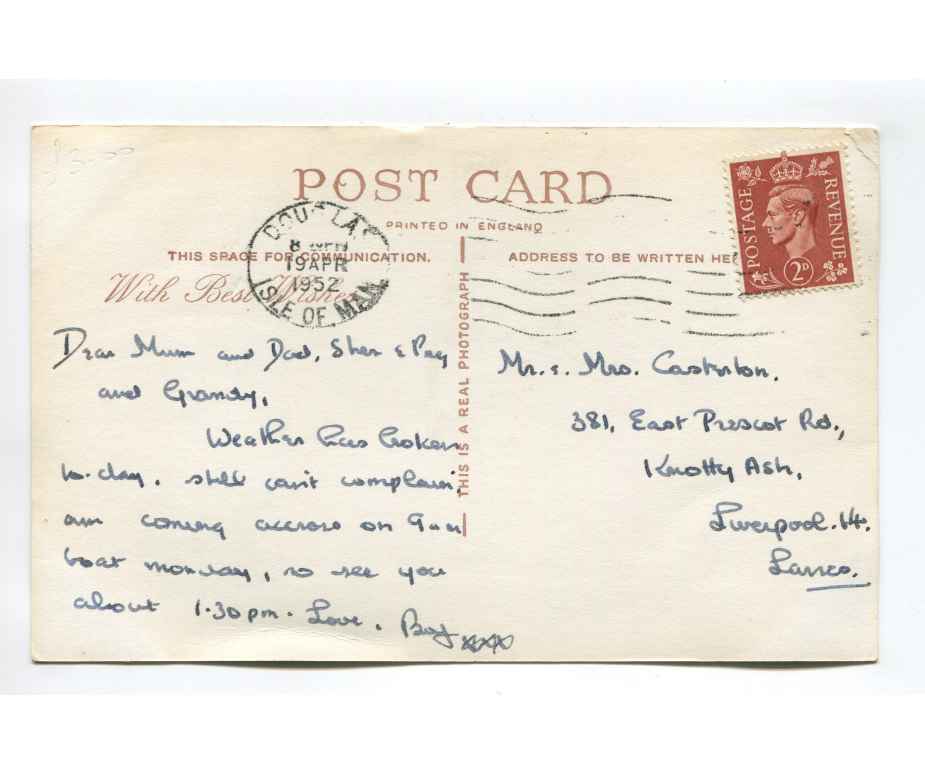 POST CARD
PRINTED IN ENGLAND
THIS SPACE FOR COMMUNICATION.
ADDRESS TO BE WRITTEN HE
With Best Wishes
THIS IS A REAL PHOTOGRAPH
DOUGLAS
19 APR
1952
ISLE OF MAN
POSTAGE
REVENUE
2D
Dear Mum and Dad, Shen & Peg
and Grandy,
Weather has broken
to-day, still can't complain,
am coming accross on 9am
boat monday, so see you
about 1.30pm. Love,
xxx
Mr. & Mrs. Casterton.
381, East Prescot Rd.,
Knotty Ash,
Liverpool. 14.
Lancs.